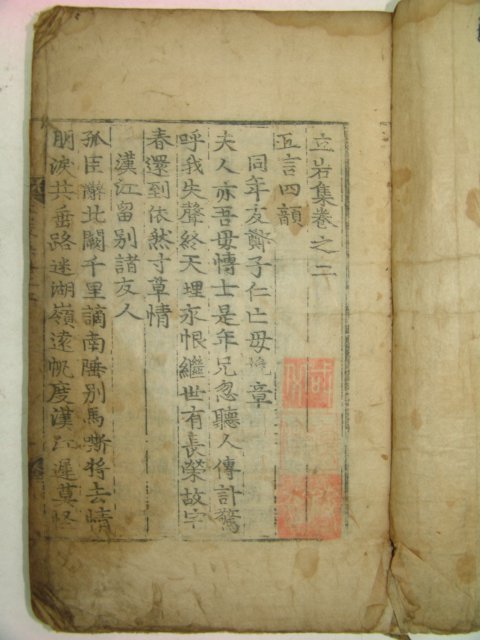 立岩集卷之二
五言四韻
同年友鄭子仁亡母挽章
夫人亦吾母博士是年兄忽聽人傳訃驚
呼我失聲終天埋永恨繼世有長榮故宇
春還到依然寸草情
漢江留別諸友人
孤臣辭北闕千里謫南陲別馬嘶將去情
朋淚共垂路迷湖嶺遠帆度漢江遲莫怪